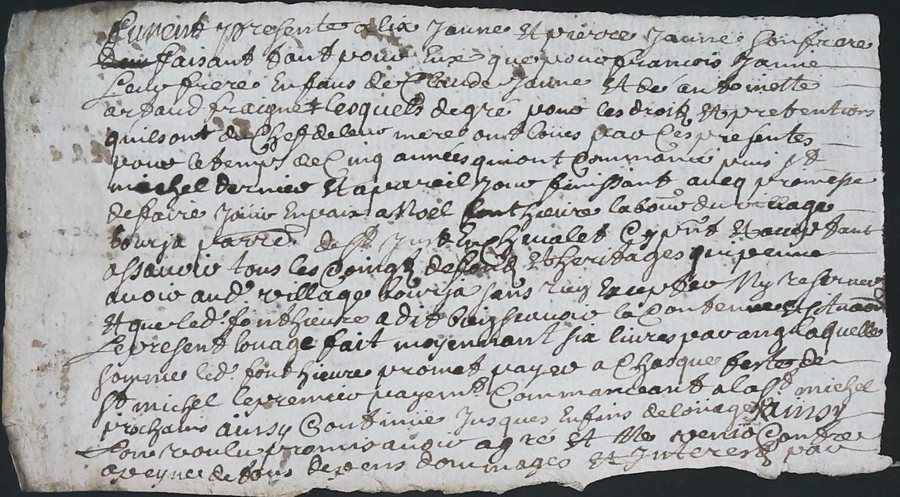 furent presents felix Jaune et pierre Jaune son frere
faisant tant pour Eux que pour francois Jaune
Leur frere Enfans de Claude Jaune Et de antoinette
artaud lesquels de gré pour les droits Et pretentions
quils ont du Chef de leur mere ont loués par Ces presentes
pour le temps de Cinq années qui ont Commancé puis St
michel dernier Et a pareil Jour finissant aveq promesse
de faire Jouir En paix a Noel fonthieure labour du village
bourja parr.e de St Just En Chevalet Cy pnt Et acceptant
assavoir tous les Coingz de fonds Et heritages qui peuvent
avoir aud. village bourja sans rien Excepter Ny reserver
Et que led. fonthieure a dit bien scavoir la Contenue Et situaon
Le present louage fait moyennant six livres par an Laquelle
somme led. fonthieure promet payer a Chasque feste de
St michel le premier payemt Commanceant a la St michel
prochain ainsy Continuer Jusques En fin de louage Car ainsy
L'ont voulu promis avoir agré Et Ne venir Contre
a peyne de tous depens dommages Et Interest par